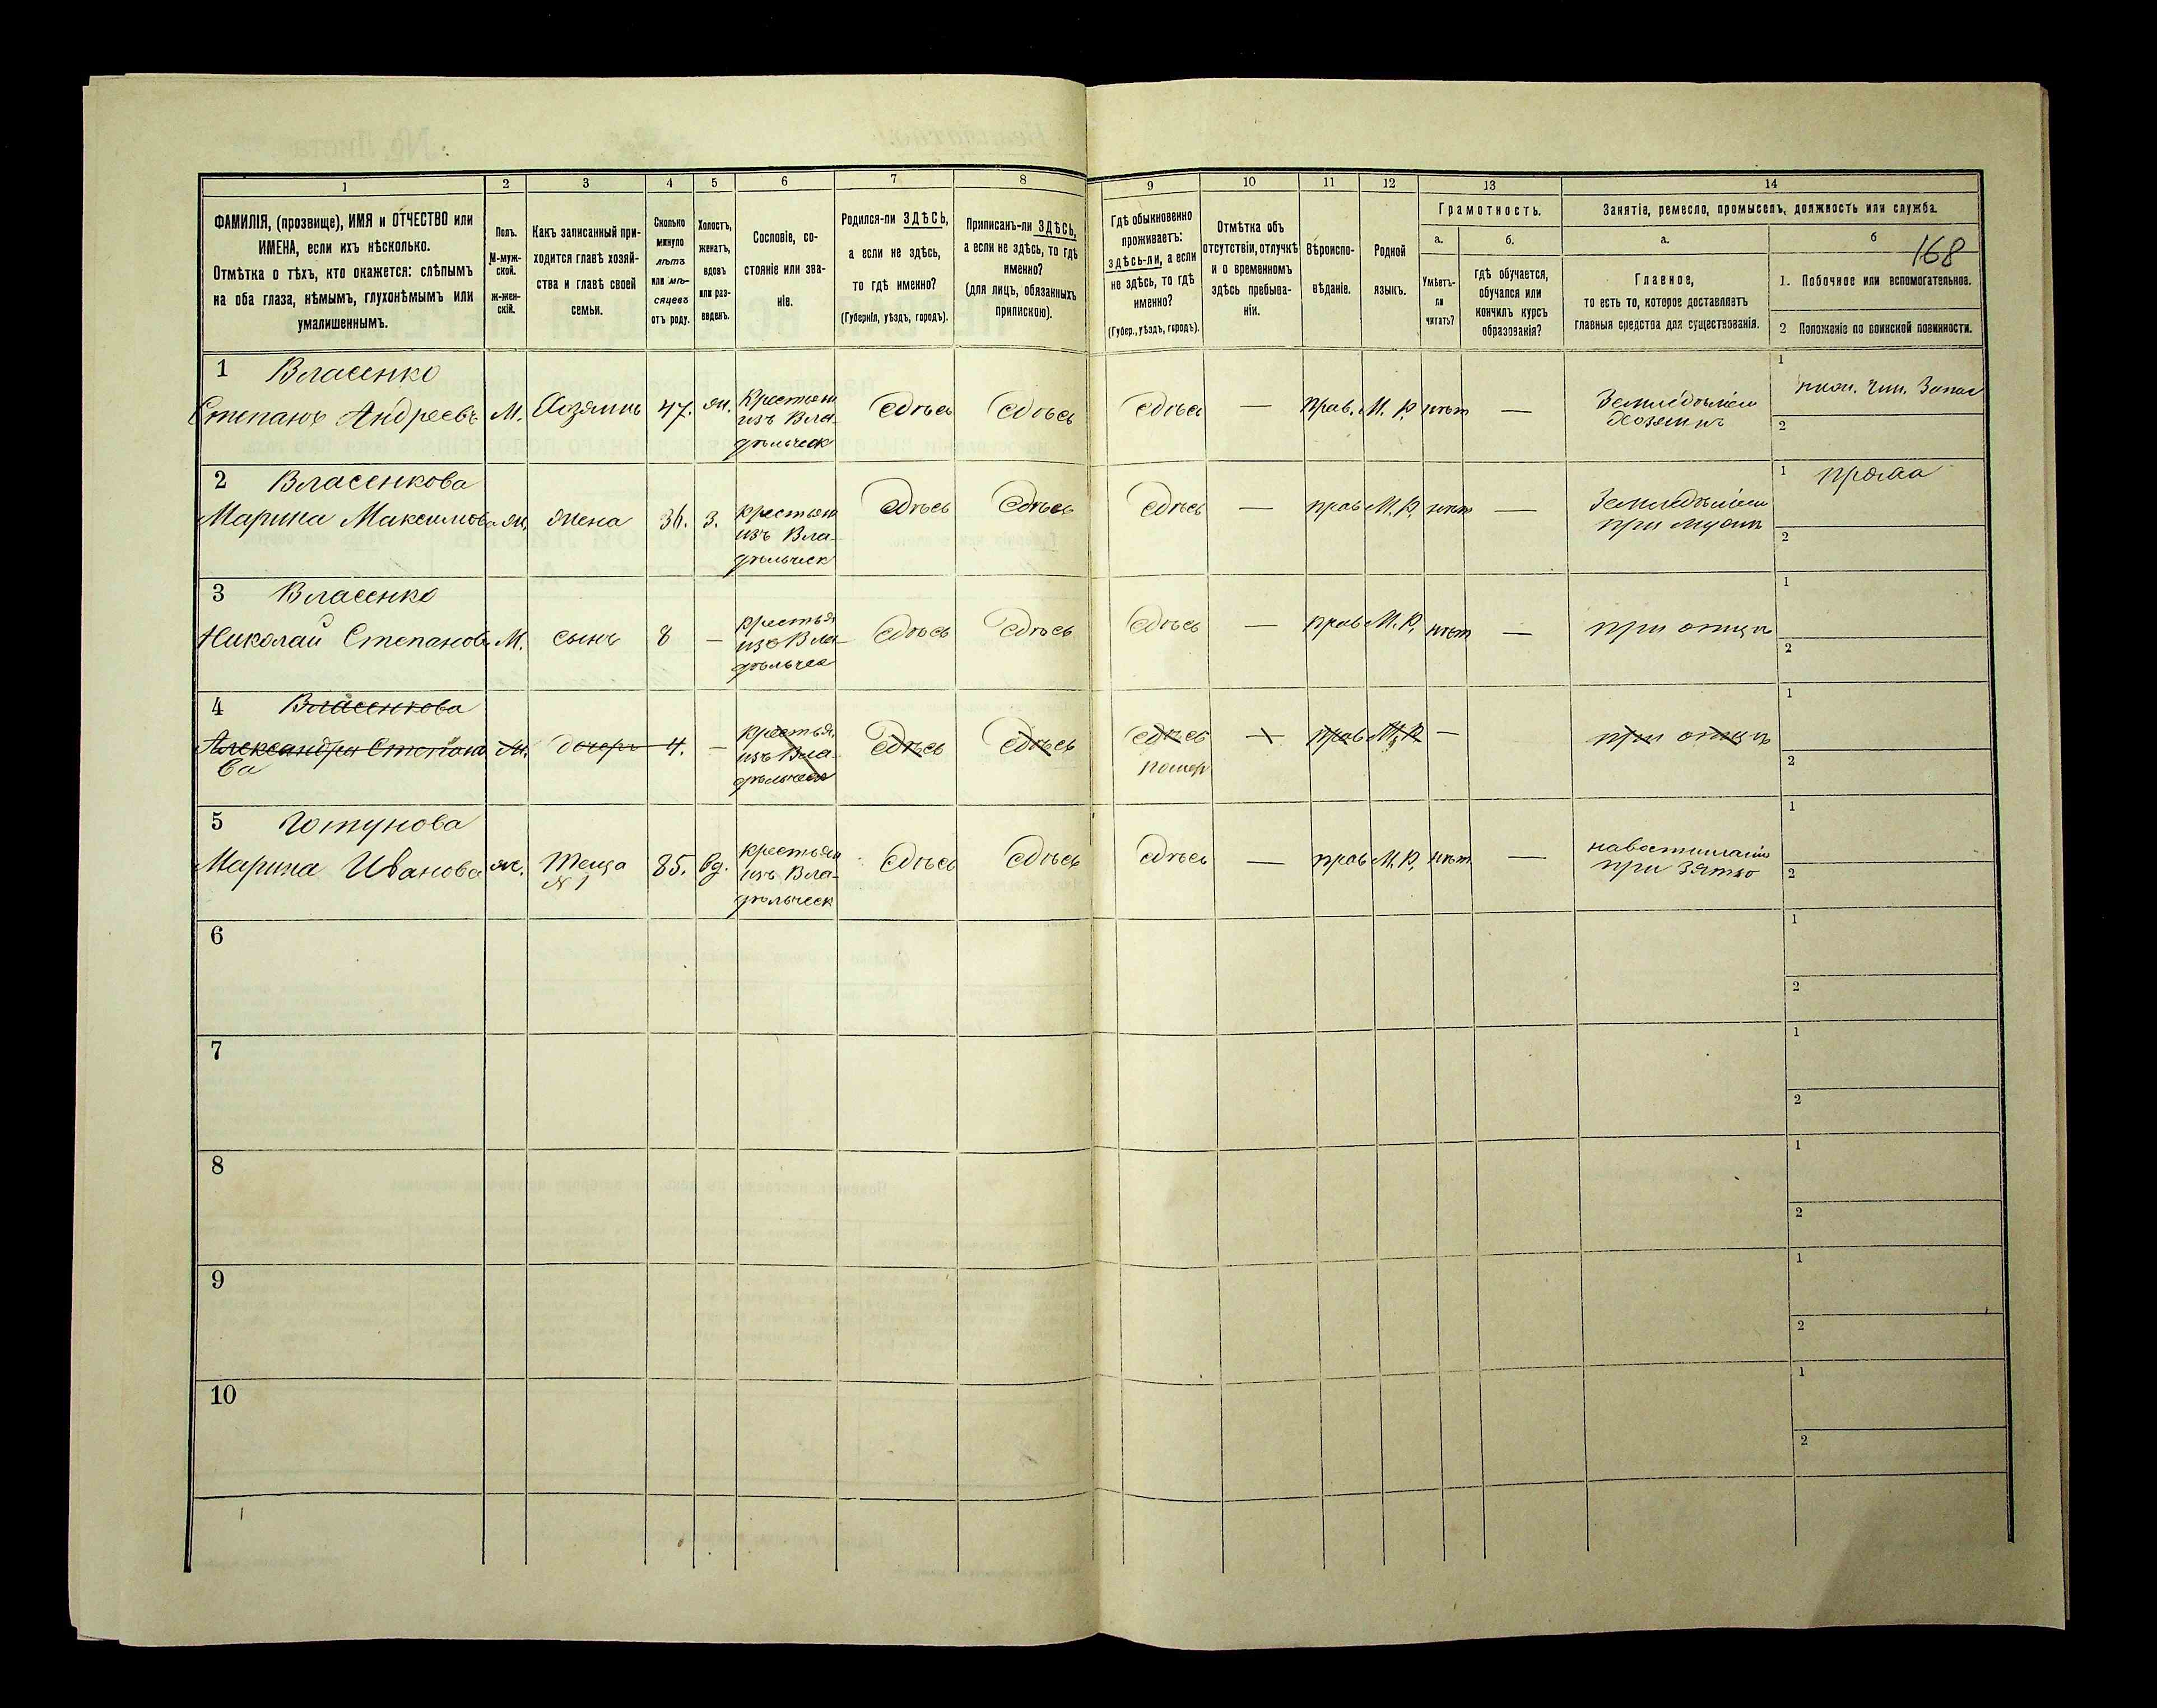 168
1
2
3
4
5
6
7
8
9
10
11
12
13
14
ФАМИЛІЯ, (прозвище), ИМЯ и ОТЧЕСТВО или
ИМЕНА, если ихъ нѣсколько.
Отмѣтка о тѣхъ, кто окажется: слѣпымъ
на оба глаза, нѣмымъ, глухонѣмымъ или
умалишеннымъ.
Полъ.
М-муж-
ской.
ж-жен-
скій.
Какъ записанный при-
ходится главѣ хозяй-
ства и главѣ своей
семьи.
Сколько
минуло
лѣтъ
или мѣ-
сяцевъ
отъ роду.
Холостъ,
женатъ,
вдовъ
или раз-
веденъ.
Сословіе, со-
стояніе или зва-
ніе.
Родился-ли ЗДѢСЬ,
а если не здѣсь,
то гдѣ именно?
(Губернія, уѣздъ, городъ).
Приписанъ-ли ЗДѢСЬ,
а если не здѣсь, то гдѣ
именно?
(для лицъ, обязанныхъ
припискою).
Гдѣ обыкновенно
проживаетъ:
здѣсь-ли, а если
не здѣсь, то гдѣ
именно?
(Губер., уѣздъ, городъ).
Отмѣтка объ
отсутствіи, отлучкѣ
и о временномъ
здѣсь пребыва-
ніи.
Вѣроиспо-
вѣданіе.
Родной
языкъ.
Грамотность.
а.
Умѣетъ-
ли
читать?
б.
гдѣ обучается,
обучался или
кончилъ курсъ
образованія?
Занятіе, ремесло, промыселъ, должность или служба.
а.
Главное,
то есть то, которое доставляетъ
главныя средства для существованія.
б
1. Побочное или вспомогательное.
2 Положеніе по воинской повинности.
1 Власенко
Степанъ Андреевъ М. Хозяинъ 47. ж. Крестьян
изъ Вла-
дѣльческ
Сдѣсь Сдѣсь Сдѣсь — прав. М. Р. нѣт —
Земледѣліем
Хозяинъ
1
2
2 Власенкова
Марина Максимова ж. жена 36. з. крестьян
изъ Вла-
дѣльческ
Сдѣсь Сдѣсь Сдѣсь — прав М. Р. нѣт —
Земледѣліем
при мужѣ
1 пряха
2
3 Власенко
Николай Степановъ М. сынъ 8 — крестья
изъ Вла-
дѣльчес
Сдѣсь Сдѣсь Сдѣсь — прав М. Р. нѣт —
при отцѣ
1
2
4 Власенкова
Александра Степано
ва
ж. дочерь 4. — крестья
изъ Вла-
дѣльческ
Сдѣсь Сдѣсь Сдѣсь
помер
— прав М. Р. —
при отцѣ
1
2
5 Готунова
Марина Иванова ж. Теща
№ 1
85. вд. крестьян
изъ Вла-
дѣльческ
Сдѣсь Сдѣсь Сдѣсь — прав М. Р. нѣт —
при зятѣ
1
2
6
1
2
7
1
2
8
1
2
9
1
2
10
1
2